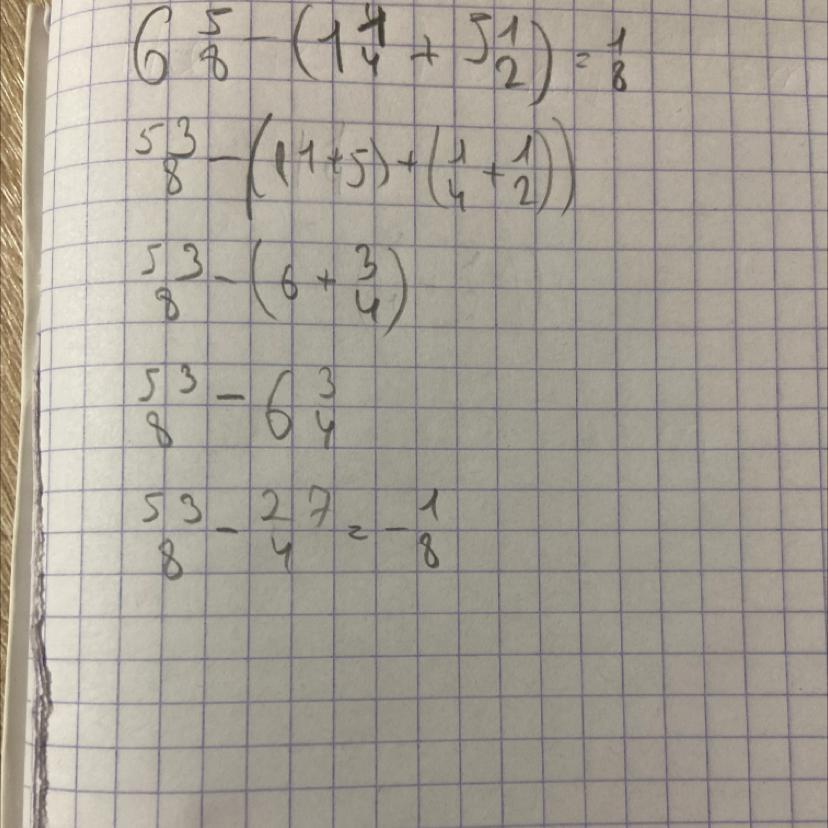 6 5/8 - (1 1/4 + 5 1/2) = 1/8
53/8 - ((1+5) + (1/4 + 1/2))
53/8 - (6 + 3/4)
53/8 - 6 3/4
53/8 - 27/4 = - 1/8